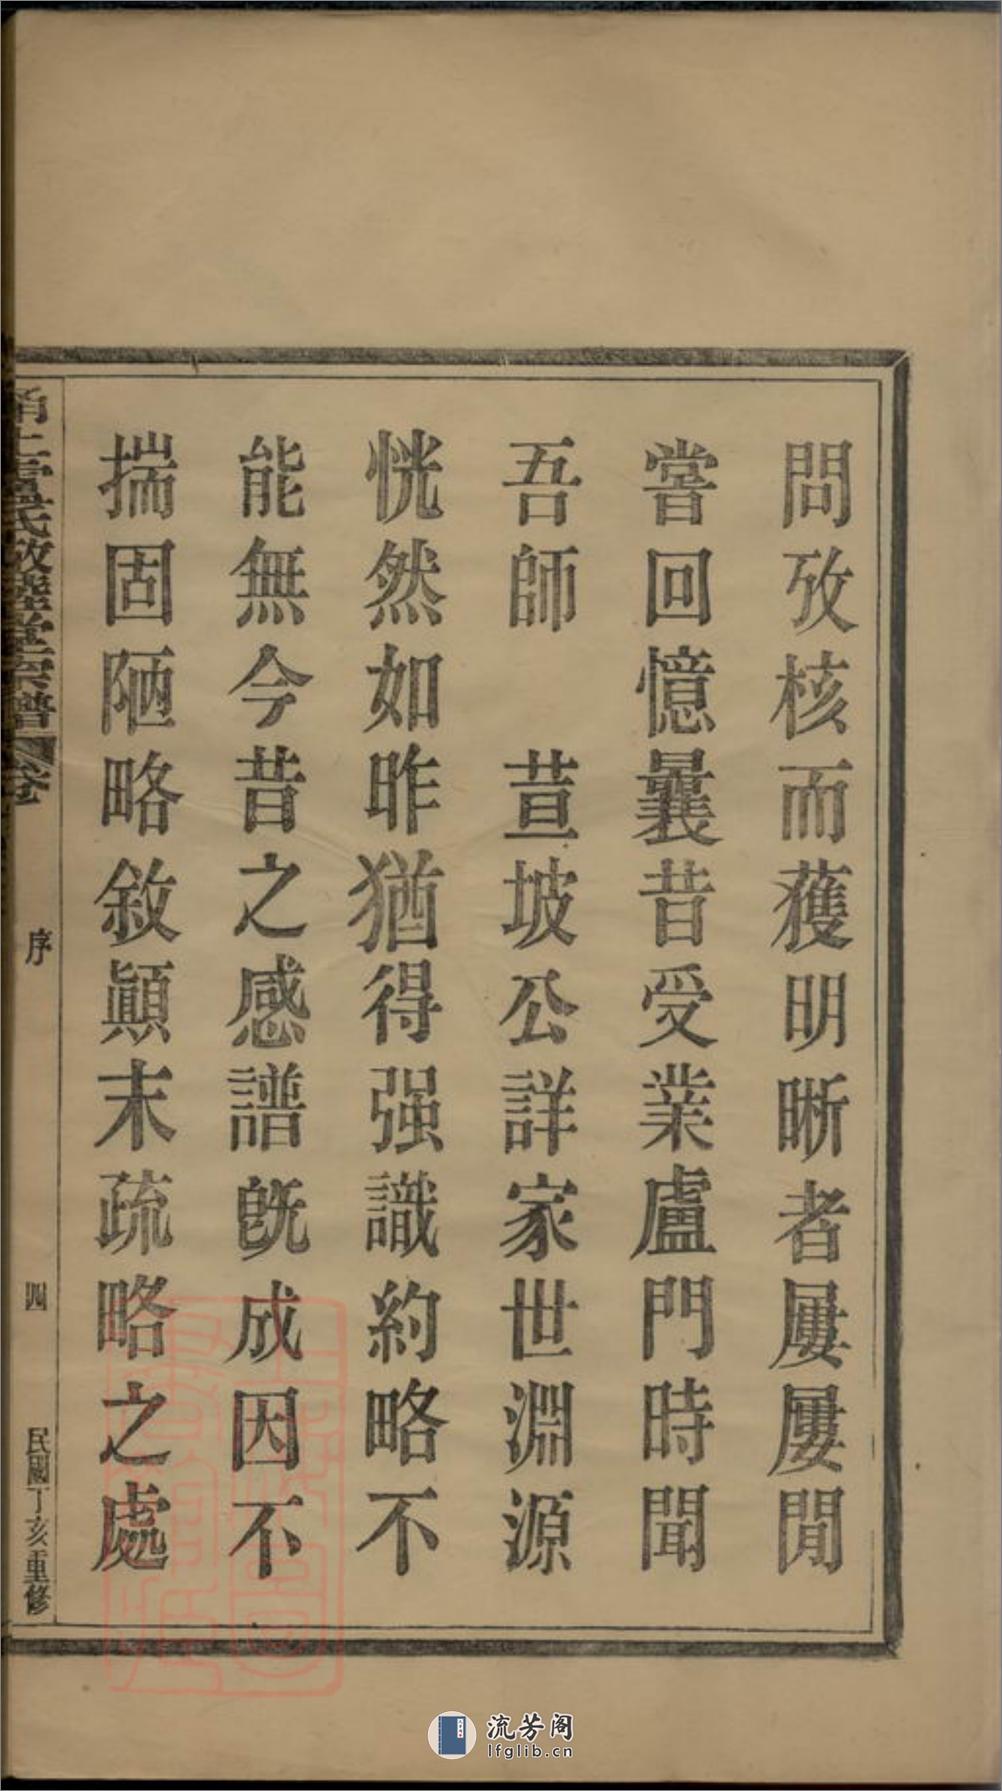 問攷核而獲明晰者屢屢閒
嘗回憶曩昔受業盧門時聞
吾師　荁坡公詳家世淵源
恍然如昨猶得强識約略不
能無今昔之感譜旣成因不
揣固陋略敘顚末疏略之處
氏敬睦堂宗譜 卷 序 四 民國丁亥重修
流芳阁
lfglib.cn